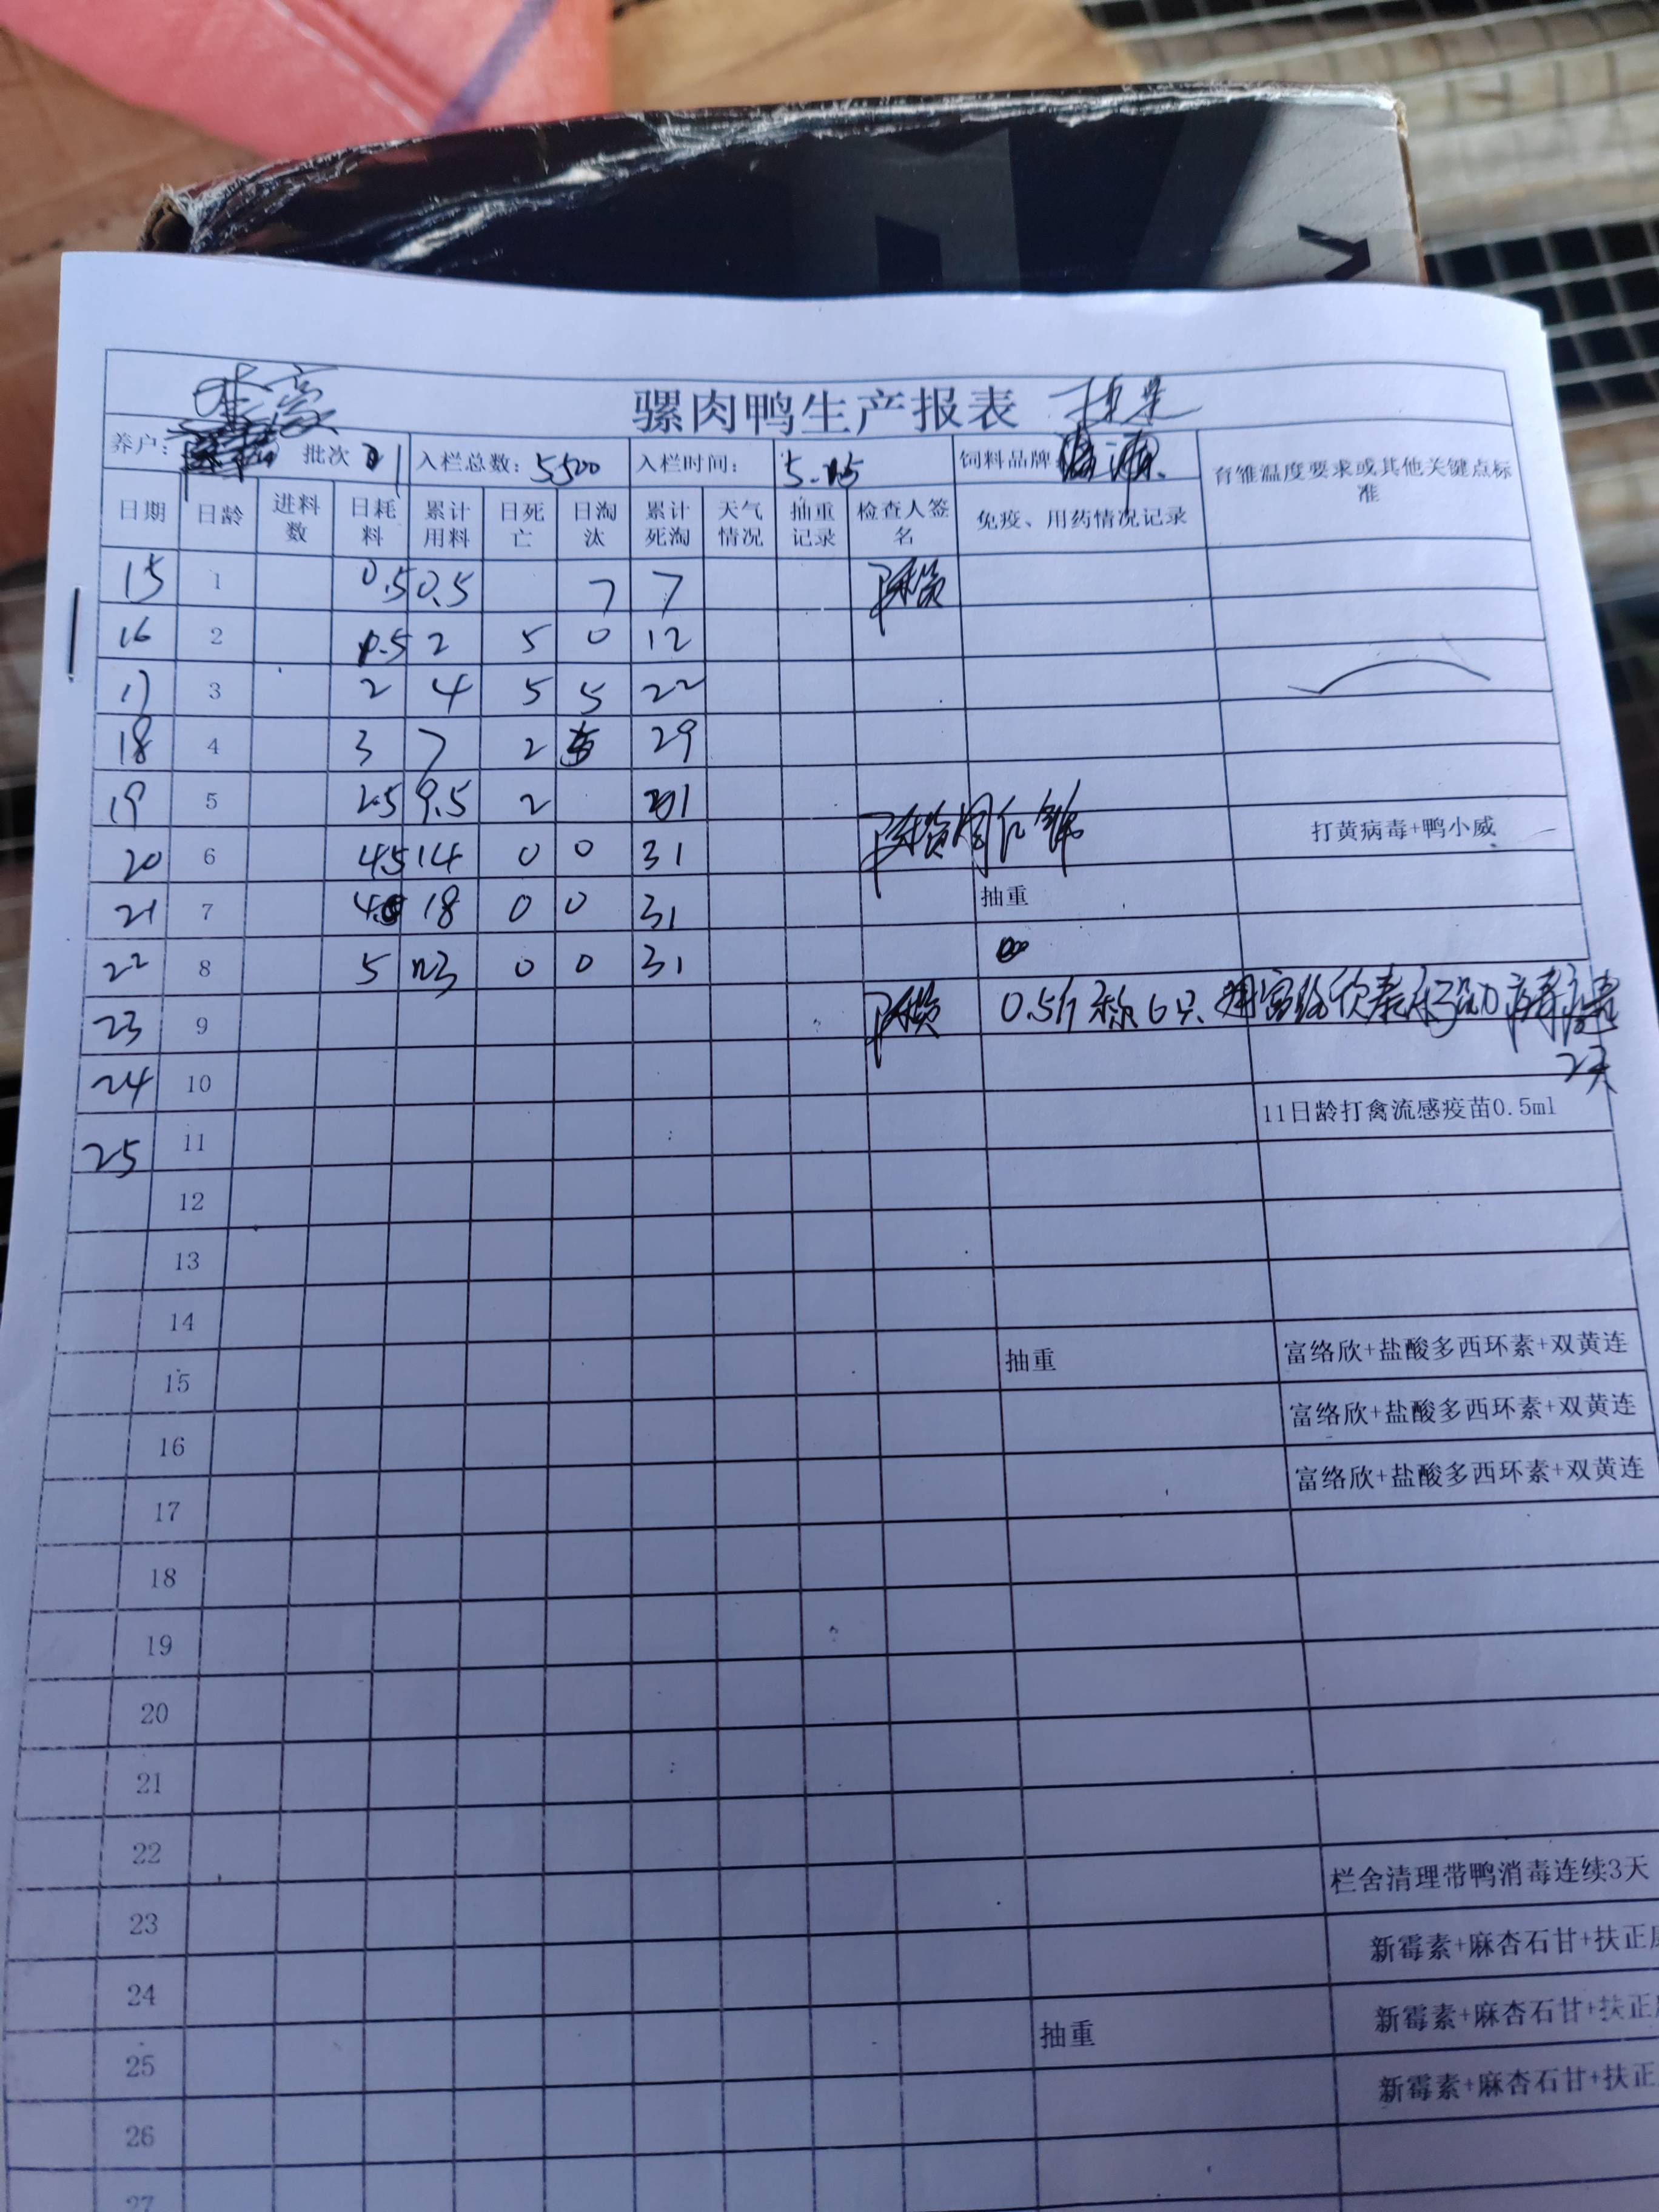 骡肉鸭生产报表
养户： 批次 入栏总数：5500 入栏时间： 5.15 饲料品牌 育雏温度要求或其他关键点标准
日期 日龄 进料数 日耗料 累计用料 日死亡 日淘汰 累计死淘 天气情况 抽重记录 检查人签名 免疫、用药情况记录
15 1 0.5 0.5 7 7
16 2 1.5 2 5 0 12
17 3 2 4 5 5 22
18 4 3 7 2 5 29
19 5 2.5 9.5 2 31
20 6 4.5 14 0 0 31 打黄病毒+鸭小威
21 7 4 18 0 0 31 抽重
22 8 5 23 0 0 31
23 9 0.5斤称6只 2天
24 10
25 11 11日龄打禽流感疫苗0.5ml
12
13
14
15 抽重 富络欣+盐酸多西环素+双黄连
16 富络欣+盐酸多西环素+双黄连
17 富络欣+盐酸多西环素+双黄连
18
19
20
21
22
23 栏舍清理带鸭消毒连续3天
24 新霉素+麻杏石甘+扶正
25 抽重 新霉素+麻杏石甘+扶正
26 新霉素+麻杏石甘+扶正
27